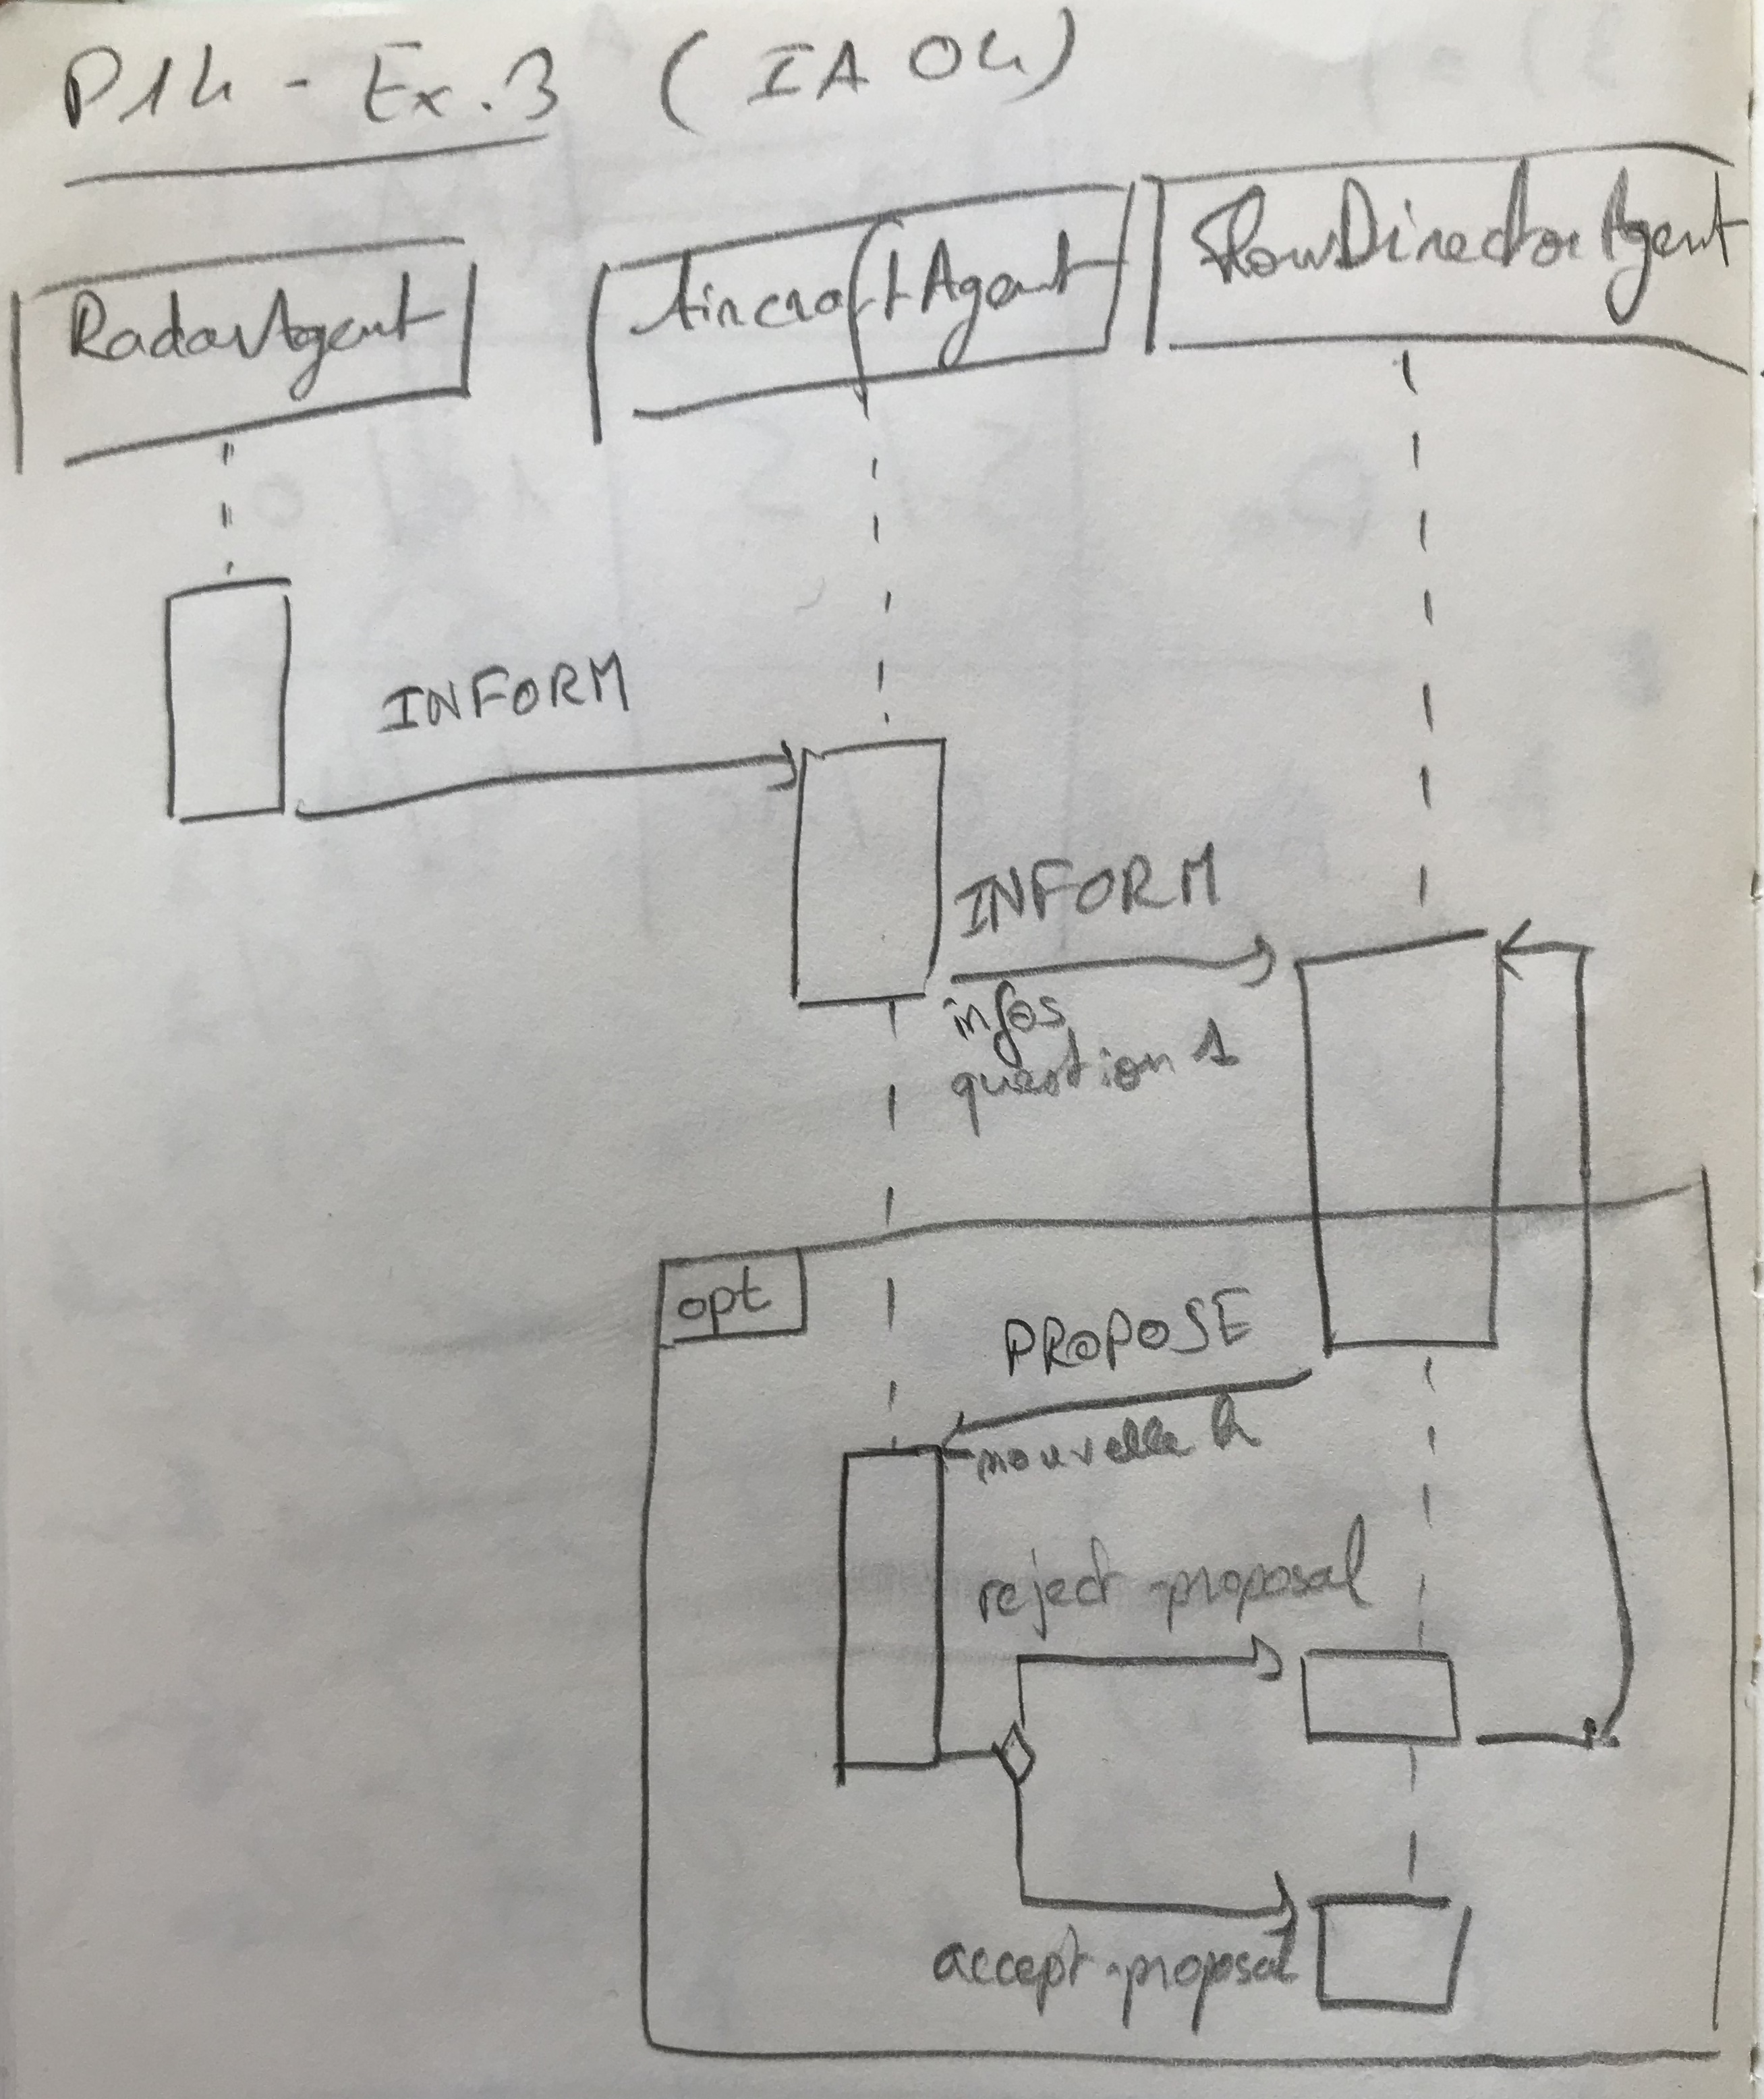 P14 - Ex.3 (IA04)
RadarAgent
AircraftAgent
FlowDirectorAgent
INFORM
INFORM
infos
question 1
opt
PROPOSE
nouvelle h
reject-proposal
accept-proposal